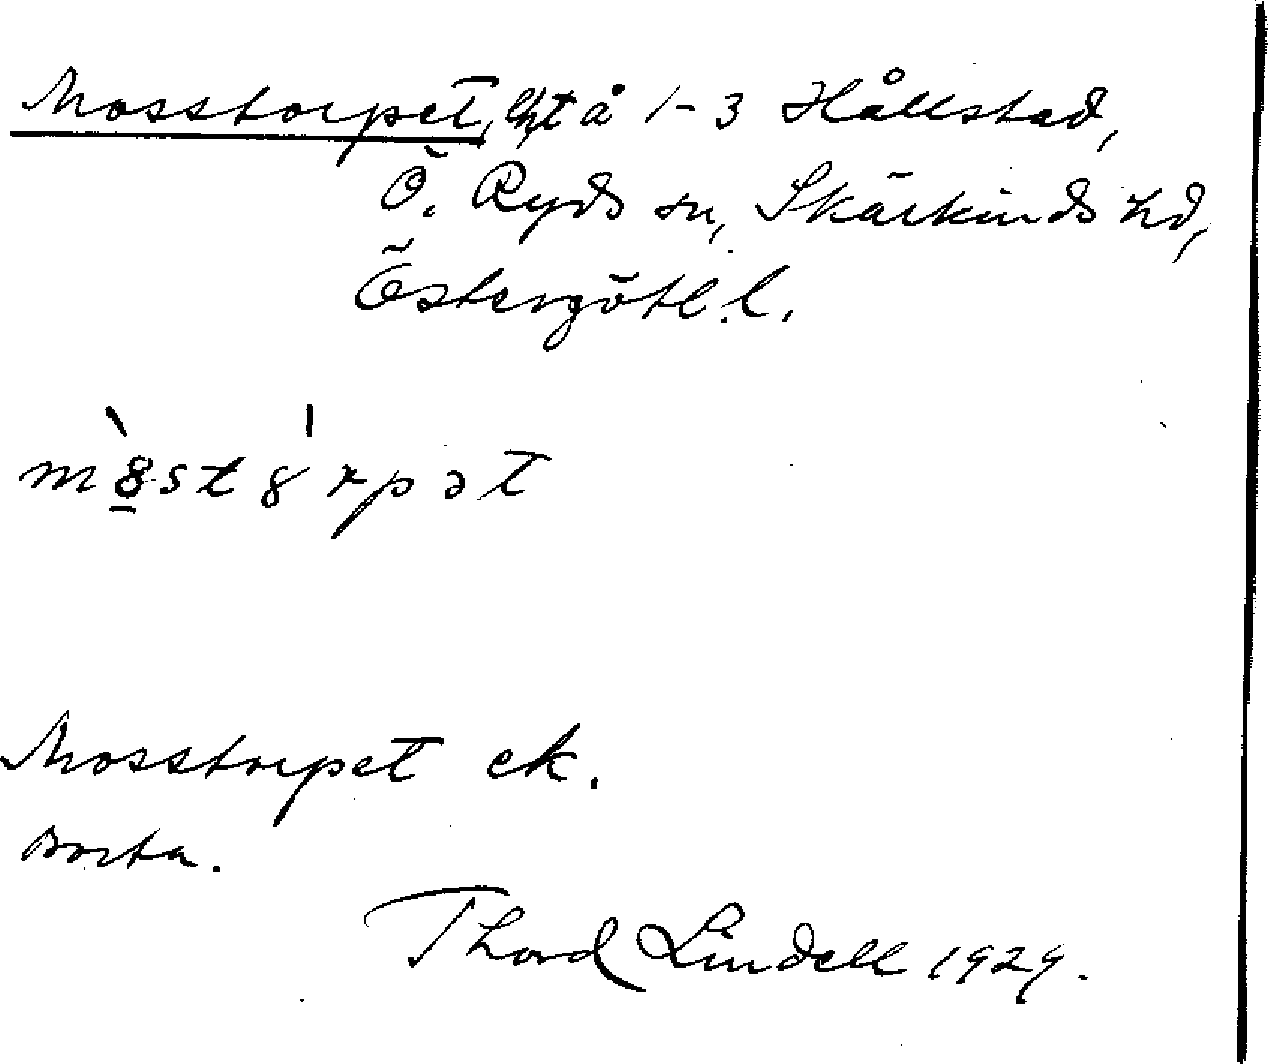 Mosstorpet, lht å 1-3 Hållstad,
Ö. Ryds sn, Skärkinds hd,
Östergötl. l.
m8̱̀st8́rpət
Mosstorpet ek.
borta.
Thord Lindell 1929.